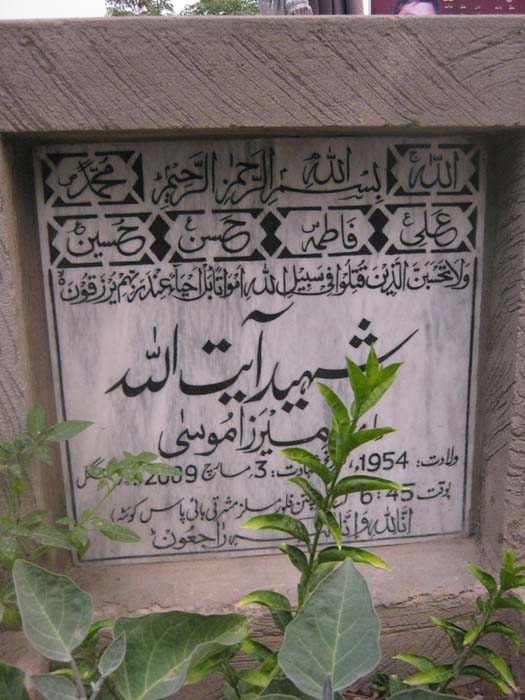 اللہ بسم اللہ الرحمن الرحیم محمد
علی فاطمہ حسن حسین
ولا تحسبن الذین قتلوا فی سبیل اللہ امواتا بل احیاء عند ربهم یرزقون
شہید آیت اللہ
میرزا موسیٰ
ولادت: 1954ء شہادت: 3 مارچ 2009ء
بوقت 6:45 فلور ملز مشرقی بائی پاس کوئٹہ)
انا للہ وانا راجعون